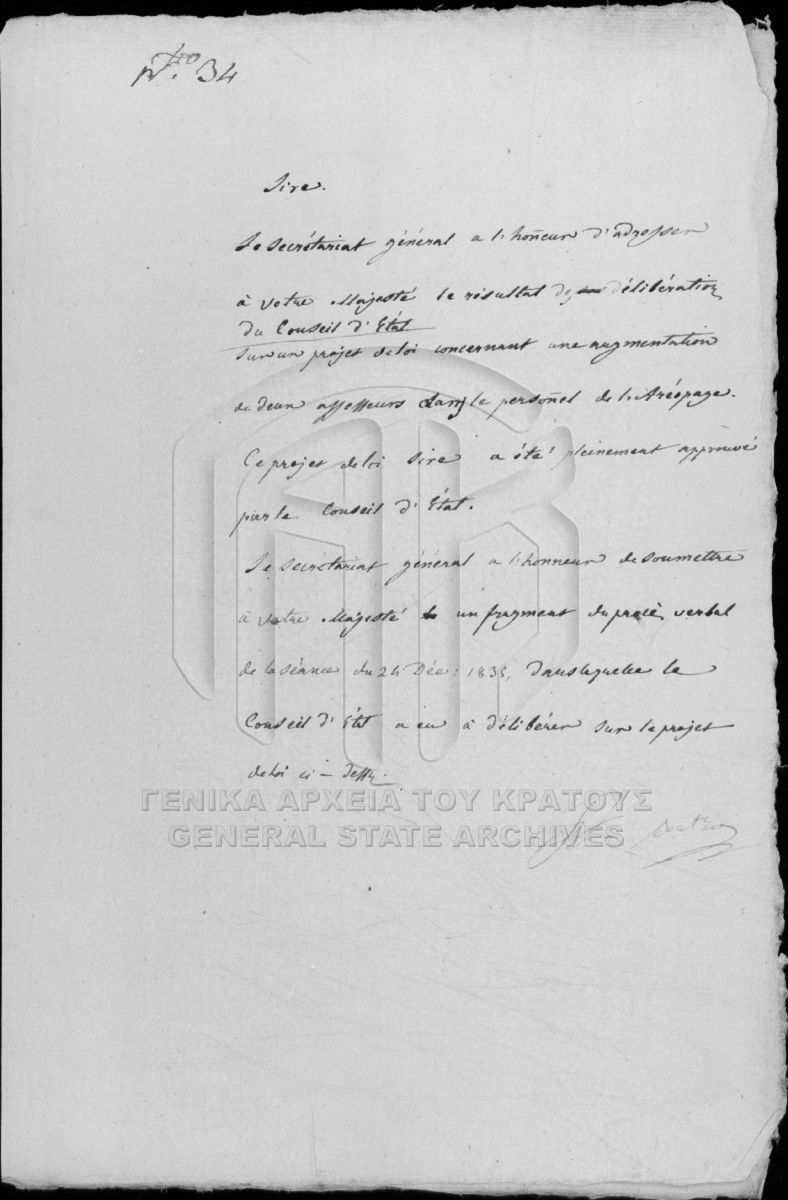 No. 34
Sire.
Le Secrétariat général a l'honneur d'adresser
à Votre Majesté le résultat des délibérations
du Conseil d'État
sur un projet de loi concernant une augmentation
de deux assesseurs dans le personnel de l'Aréopage.
Ce projet de loi Sire a été pleinement approuvé
par le Conseil d'État.
Le Secrétariat général a l'honneur de soumettre
à Votre Majesté un fragment du procès verbal
de la séance du 24 Déc: 1835, dans laquelle le
Conseil d'État a eu à délibérer sur le projet
de loi ci-dessus.
ΓΕΝΙΚΑ ΑΡΧΕΙΑ ΤΟΥ ΚΡΑΤΟΥΣ
GENERAL STATE ARCHIVES